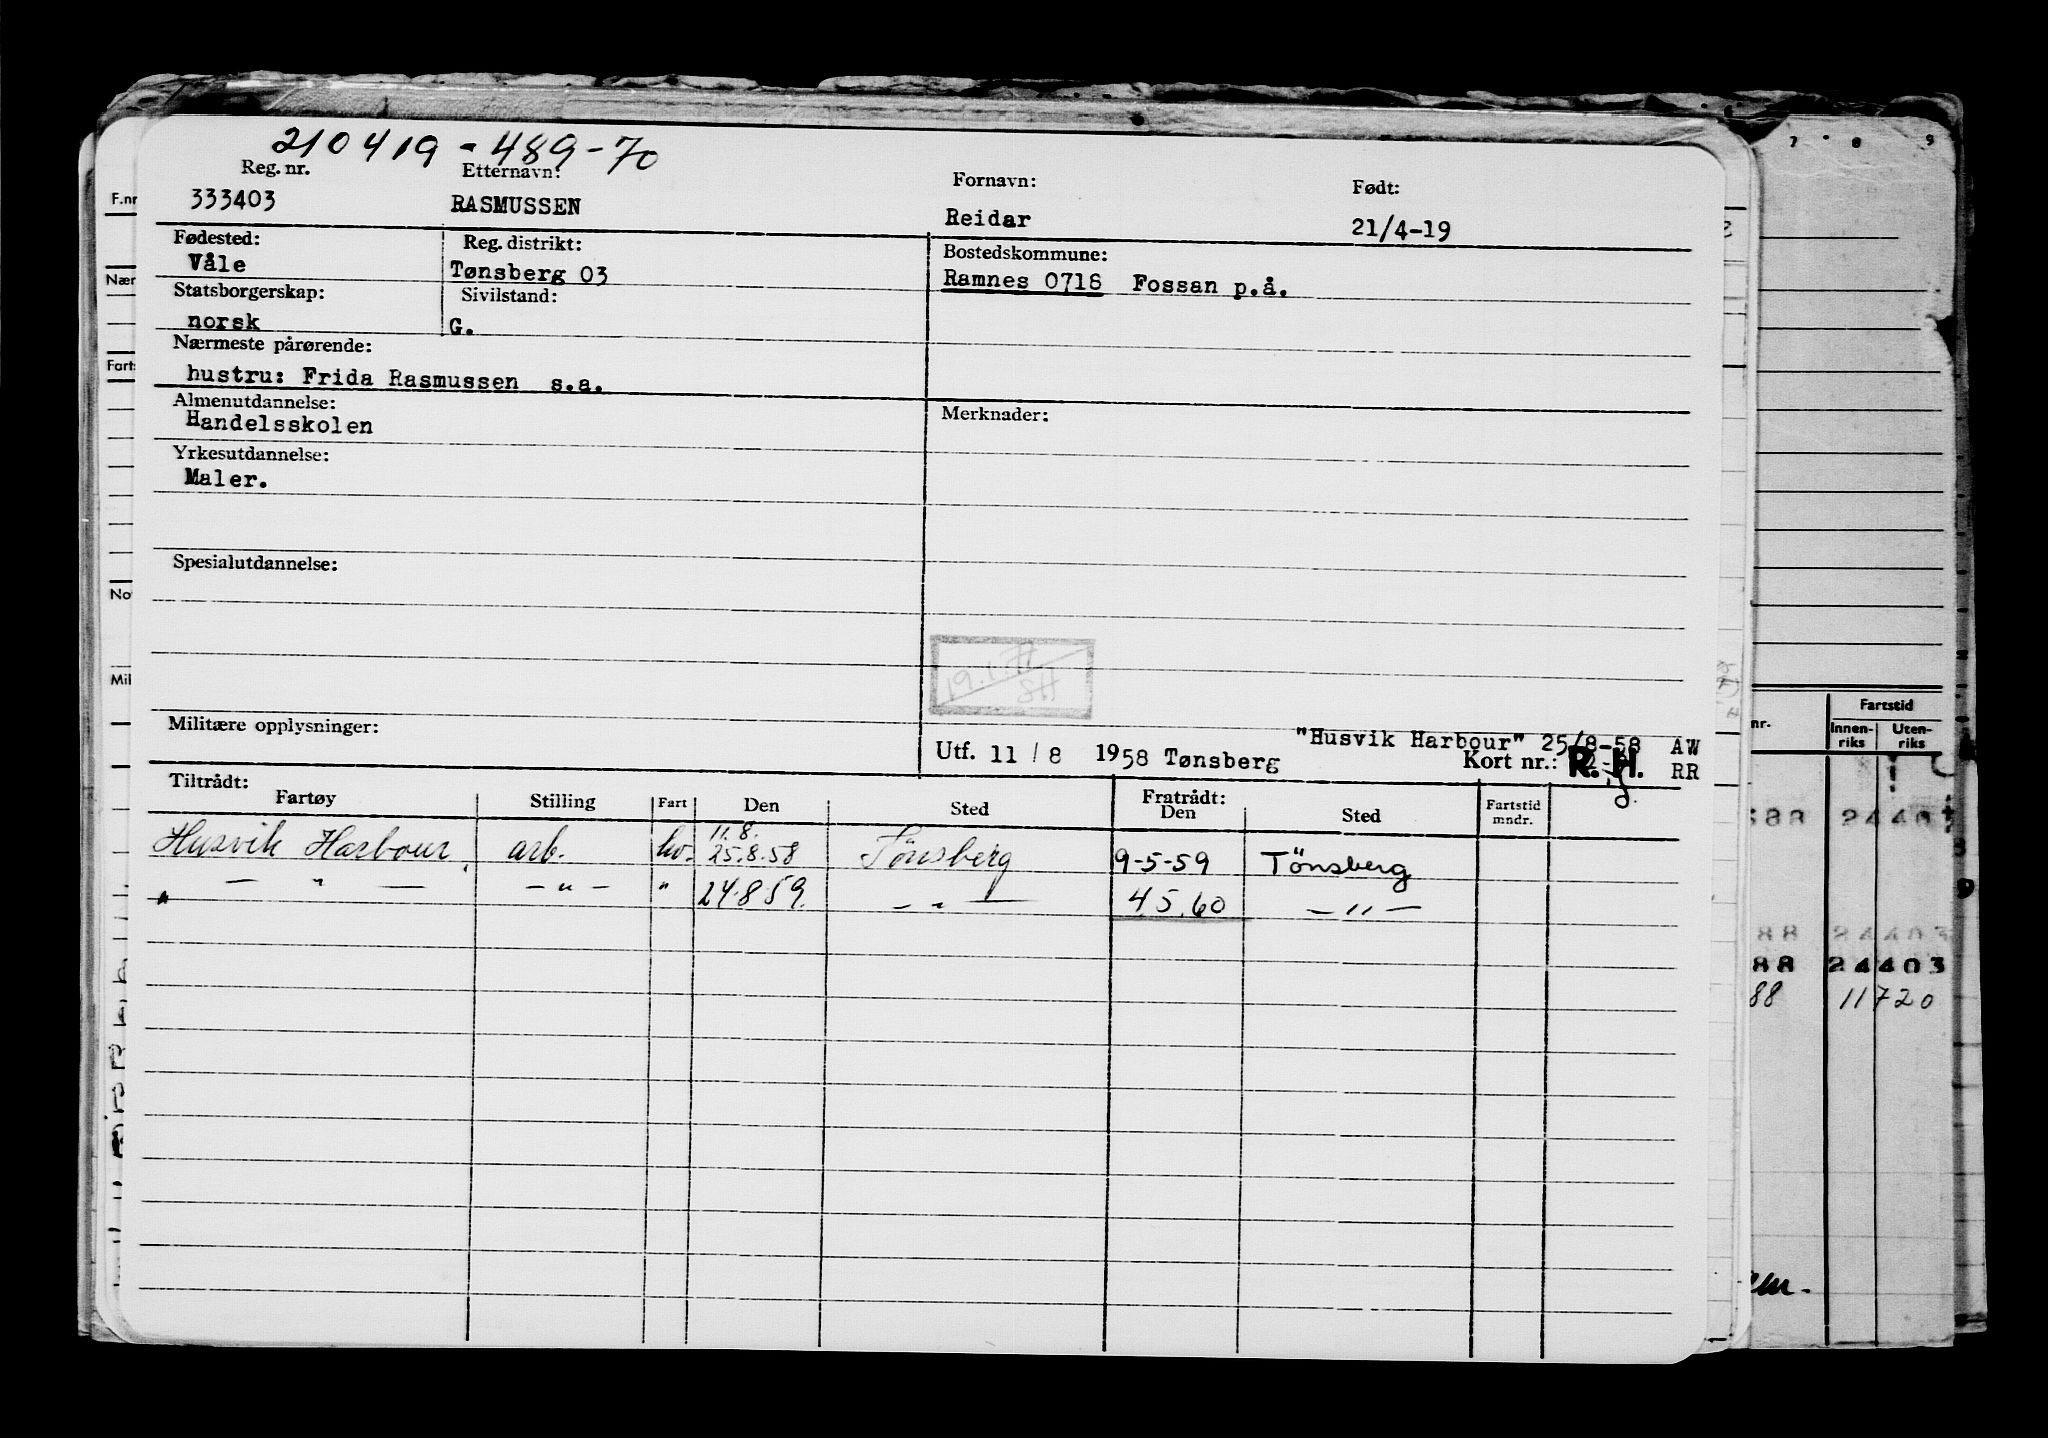 210419-489-70
Reg. nr. Etternavn: Fornavn: Født:
333403 RASMUSSEN Reidar 21/4-19
Fødested: Reg. distrikt: Bostedskommune:
Våle Tønsberg 03 Ramnes 0718 Fossan p.å.
Statsborgerskap: Sivilstand:
norsk G.
Nærmeste pårørende:
hustru: Frida Rasmussen s.a.
Almenutdannelse: Merknader:
Handelsskolen
Yrkesutdannelse:
Maler.
Spesialutdannelse:
Militære opplysninger:
"Husvik Harbour" 25/8-58 AW
Utf. 11/8 1958 Tønsberg Kort nr.: R.H. RR
Tiltrådt: Fratrådt:
Fartøy Stilling Fart Den Sted Den Sted Fartstid mndr.
11.8.
Husvik Harbour arb. hv. 25.8.58 Tönsberg 9-5-59 Tönsberg
" — " — — " — " 24.8.59. — " — 4.5.60 — " —
F.nr
Nær
Farts
No
Mil
7 8 9
nr. Fartstid
Innen-riks Uten-riks
88 24403
88 24403
88 11720